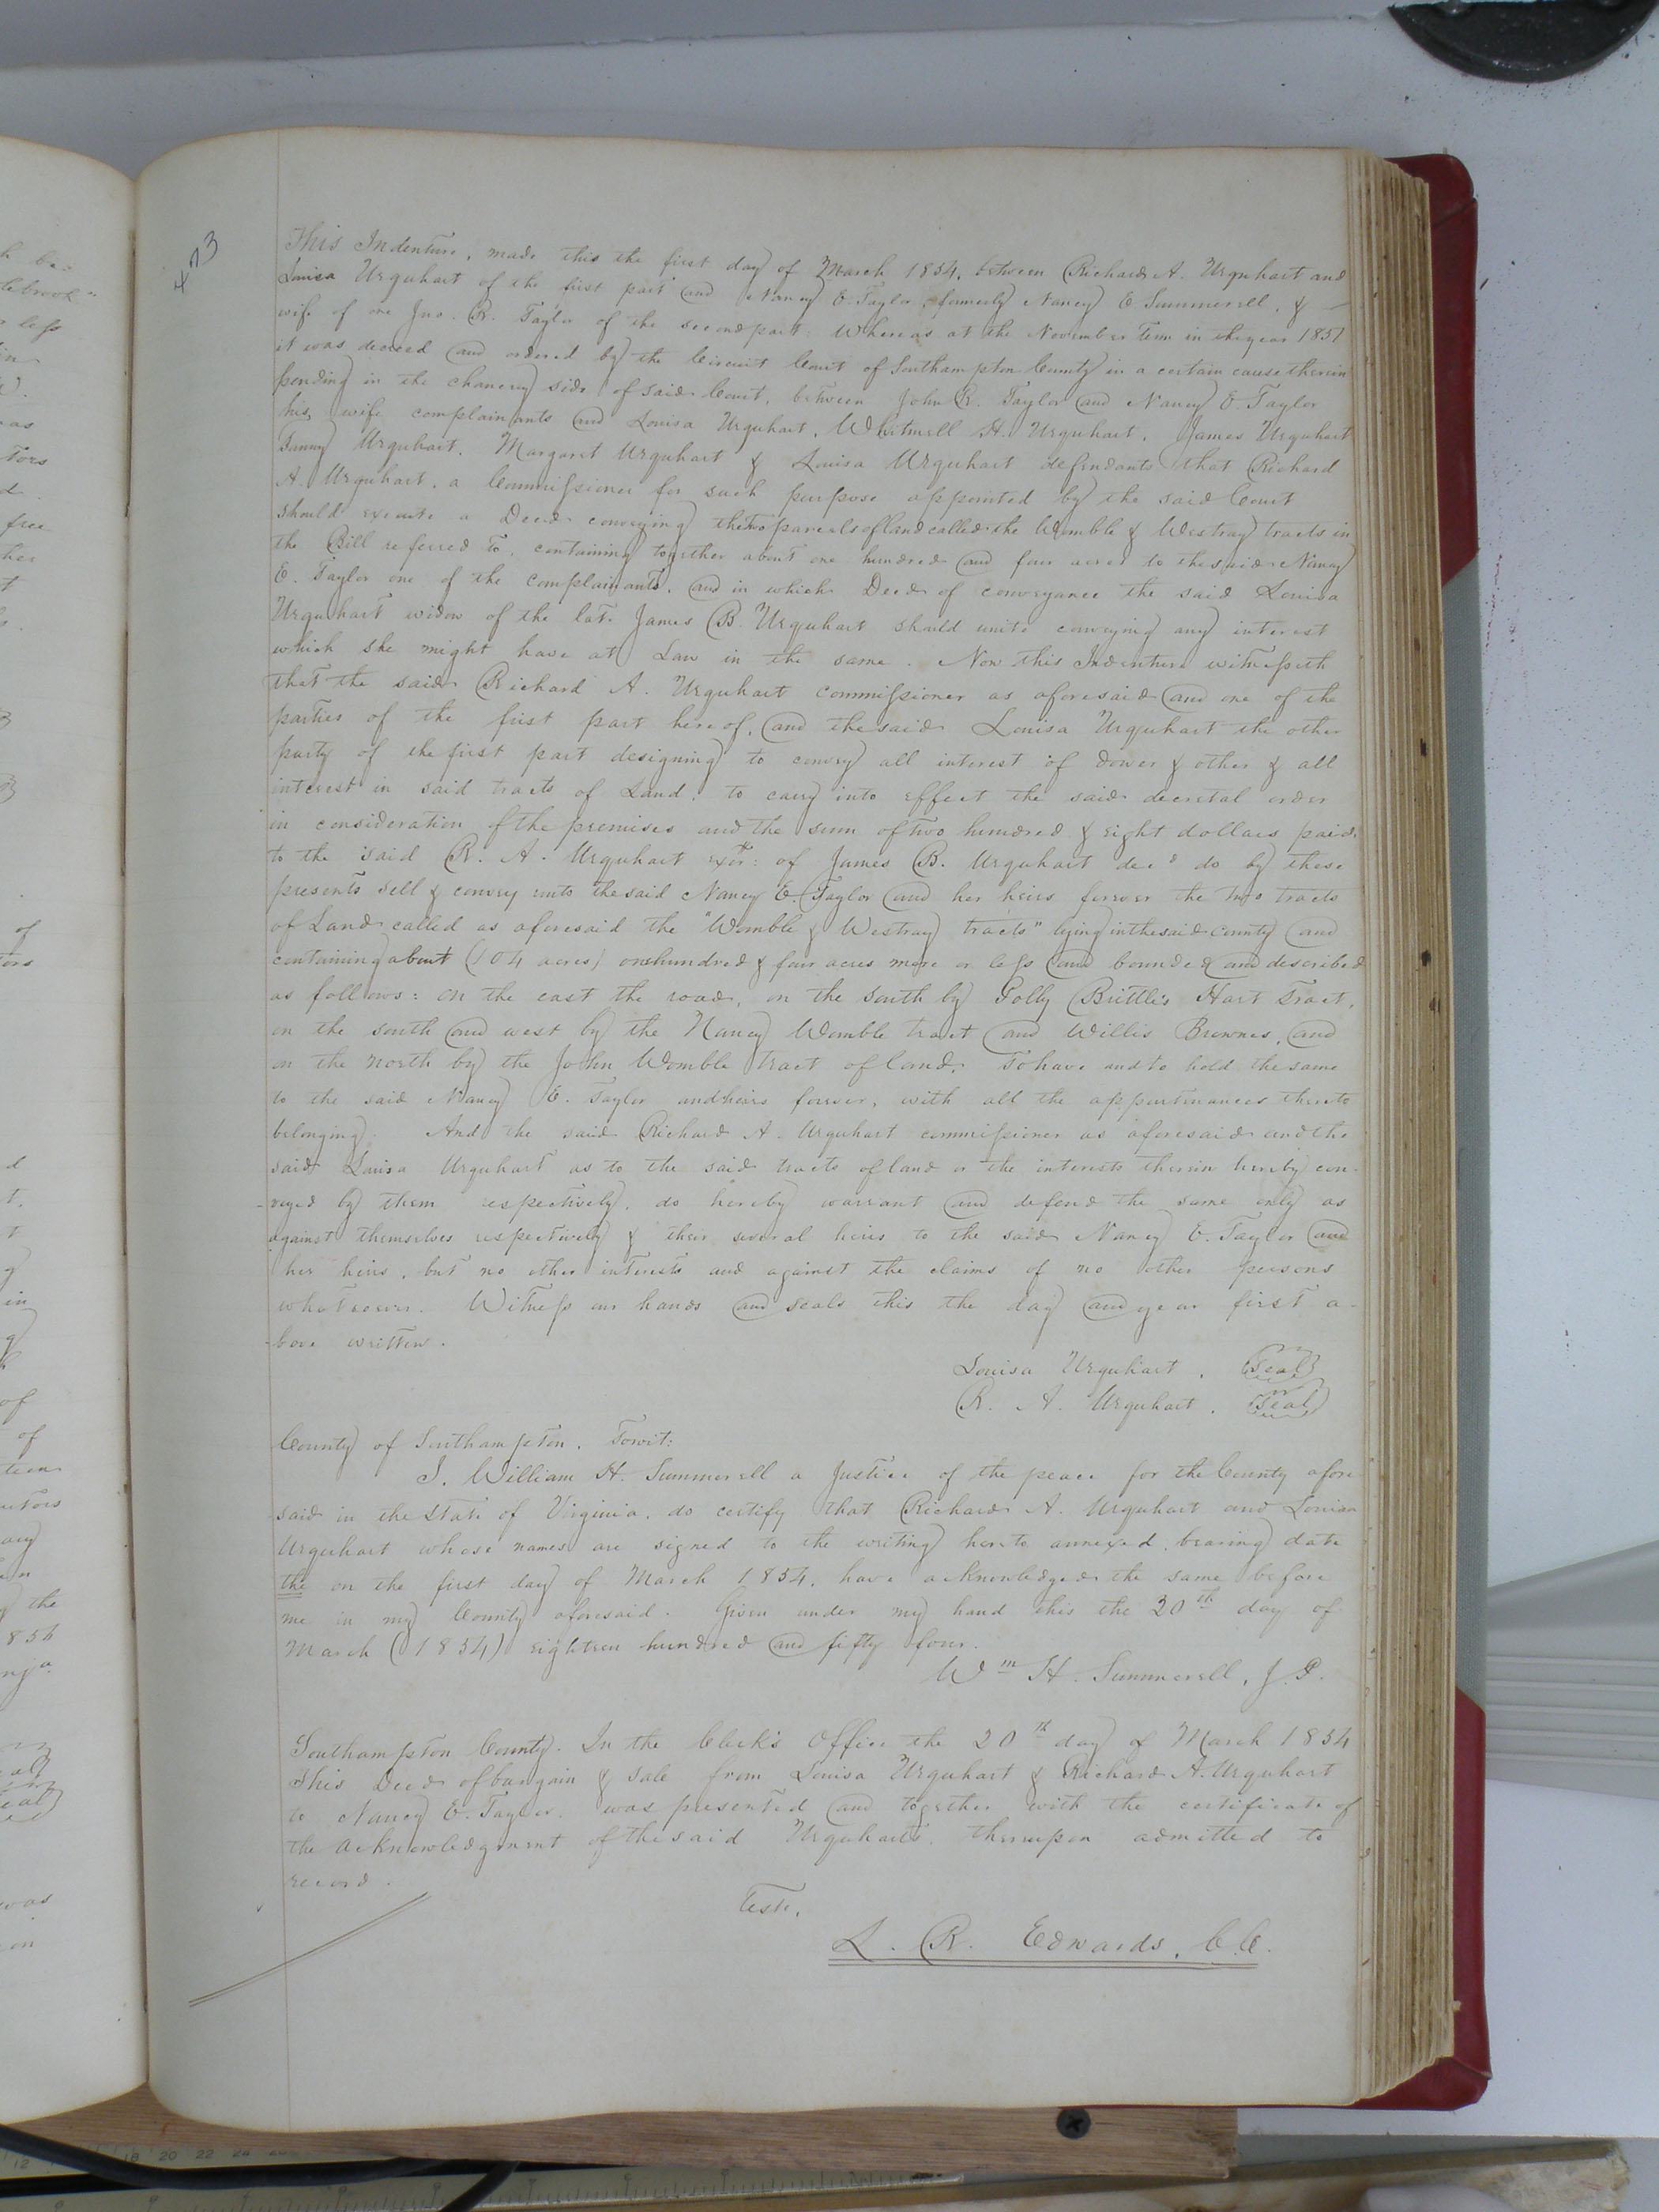 423
This Indenture, made this the first day of March 1854, between Richard A. Urquhart and
Louisa Urquhart of the first part and Nancy E. Taylor, formerly Nancy E Summerell, &
wife of one Jno. R. Taylor of the second part. Whereas at the November Term in the year 1851
it was decreed and ordered by the Circuit Court of Southampton County in a certain cause therein
pending in the chancery side of said Court, between John R. Taylor and Nancy E. Taylor
his wife complainants and Louisa Urquhart, Whitmell H. Urquhart, James Urquhart
Urquhart, Margaret Urquhart & Louisa Urquhart defendants that Richard
A. Urquhart, a Commissioner for such purpose appointed by the said Court
should execute a Deed conveying the two parcels of land called the Womble & Westray tracts in
the Bill referred to, containing together about one hundred and four acres to the said Nancy
E. Taylor one of the complainants, and in which Deed of conveyance the said Louisa
Urquhart widow of the late James B. Urquhart should unite conveying any interest
which she might have at Law in the same. Now this Indenture witnesseth
that the said Richard A. Urquhart commissioner as aforesaid and one of the
parties of the first part hereof, and the said Louisa Urquhart the other
party of the first part designing to convey all interest of dower & other & all
interest in said tracts of Land, to carry into effect the said decretal order
in consideration of the premises and the sum of two hundred & eight dollars paid
to the said R. A. Urquhart exor: of James B. Urquhart decd do by these
presents sell & convey unto the said Nancy E. Taylor and her heirs forever the two tracts
of Land called as aforesaid the "Womble & Westray tracts" lying in the said County and
containing about (104 acres) one hundred & four acres more or less and bounded and described
as follows: on the east the road, on the south by Polly Brittle's Hart Tract,
on the south and west by the Nancy Womble tract and Willis Brownes, and
on the north by the John Womble tract of land. To have and to hold the same
to the said Nancy E. Taylor and heirs forever, with all the appurtenances thereto
belonging. And the said Richard A. Urquhart commissioner as aforesaid and the
said Louisa Urquhart as to the said tracts of land or the interests therein hereby con-
-veyed by them respectively, do hereby warrant and defend the same only as
against themselves respectively & their several heirs to the said Nancy E. Taylor and
her heirs, but no other interests and against the claims of no other persons
whatsoever. Witness our hands and seals this the day and year first a-
-bove written.
Louisa Urquhart. Seal
R. A. Urquhart. Seal
County of Southampton. Towit:
I, William H. Summerell a Justice of the peace for the County afore-
-said in the State of Virginia, do certify that Richard A. Urquhart and Louisa
Urquhart whose names are signed to the writing hereto annexed, bearing date
the on the first day of March 1854, have acknowledged the same before
me in my County aforesaid. Given under my hand this the 20th day of
March (1854) eighteen hundred and fifty four.
Wm H. Summerell, J.P.
Southampton County. In the Clerk's Office the 20th day of March 1854
This Deed of bargain & sale from Louisa Urquhart & Richard A. Urquhart
to Nancy E. Taylor, was presented and together with the certificate of
the acknowledgment of the said Urquharts, thereupon admitted to
record.
Teste,
L. R. Edwards, C.C.